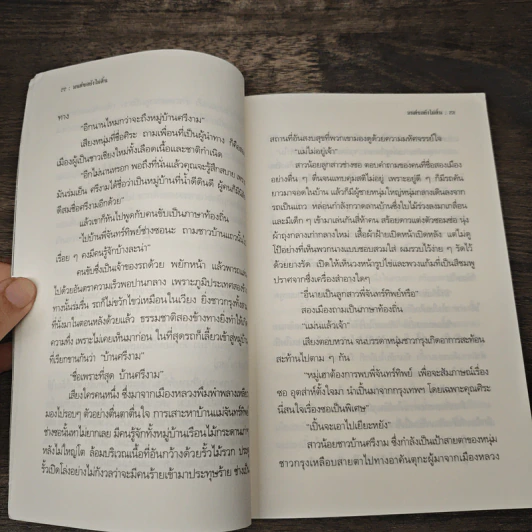 ทาง
"อีกนานไหมกว่าจะถึงหมู่บ้านศรีงาม"
เสียงหนุ่มที่ชื่อศิระ ถามเพื่อนที่เป็นผู้นำทาง
เมืองผู้เป็นชาวเชียงใหม่ทั้งเลือดเนื้อและชาติกำเนิด
"อีกไม่นานหรอก พอถึงที่นั่นแล้วคุณจะรู้สึกสบาย
มันร่มเย็น ศรีงามได้ชื่อว่าเป็นหมู่บ้านที่น้ำดีดินดี ผู้คนก็
ดีสมชื่อศรีงามอีกด้วย"
แล้วเขาก็หันไปพูดกับคนขับเป็นภาษาท้องถิ่น
"ไปบ้านพี่จันทร์ทิพย์ช่างซอนะ ถามชาวบ้านแถวนั้น
เรื่อย ๆ คงมีคนรู้จักบ้างละน่า"
คนขับซึ่งเป็นเจ้าของรถด้วย พยักหน้า แล้วพารถแล่น
ไปด้วยอันตราความเร็วพอปานกลาง เพราะภูมิประเทศสอง
ทางนั้นร่มรื่น รถก็ไม่ขวักไขว่เหมือนในเวียง ยิ่งชาวกรุง
ที่นั่งมาในตอนหลังด้วยแล้ว ธรรมชาติสองข้างทางยิ่งทำให้
ความทึ่ง เพราะไม่เคยเห็นมาก่อน ในที่สุดรถก็เลี้ยวเข้าสู่หมู่บ้าน
ที่เรียกขานกันว่า "บ้านศรีงาม"
"ชื่อเพราะที่สุด บ้านศรีงาม"
เสียงใครคนหนึ่ง ซึ่งมาจากเมืองหลวงพึมพำพลางเหลียว
มองไปรอบๆ ด้วยอย่างตื่นตาตื่นใจ การเสาะหาบ้านแม่จันทร์ทิพย์
ช่างซอนั้นหาไม่ยากเลย มีคนรู้จักทั้งหมู่บ้านเรือนไม้กระดาน
หลังไม่ใหญ่โต ล้อมบริเวณเนื้อที่อันกว้างด้วยรั้วไม้รวก
รั้วเปิดโล่งอย่างไม่กังวลว่าจะมีคนร้ายเข้ามาประทุษร้าย
สถานที่อันสงบสุขที่พวกเขามองดูด้วยความมหัศจรรย์ใจ
"แม่ไม่อยู่เจ้า"
สาวน้อยลูกสาวช่างซอ ตอบคำถามของคนที่ชื่อสองเมือง
อย่างตื่น ๆ ตื่นจนแทบคุมสติไม่อยู่ เพราะอยู่ดี ๆ ก็มีรถคัน
ยาวมาจอดในบ้าน แล้วก็มีผู้ชายหนุ่มใหญ่หนุ่มกลางเดินลงจาก
รถเป็นแถว หล่อนกำลังกวาดลานบ้านซึ่งใบไม้ร่วงลงมาเกลื่อน
และมีเด็ก ๆ เข้ามาเล่นกันสี่ห้าคน สร้อยดาวแต่งตัวซอมซ่อ นุ่ง
ผ้าถุงกลางเก่ากลางใหม่ เสื้อผ้าฝ้ายเปิดหน้าเปิดหลัง แต่ไม่ดู
โป๊อย่างที่เห็นพวกนางแบบชอบสวมใส่ ผมรวบไว้ง่าย ๆ รัดไว้
ด้วยยางรัด เปิดให้เห็นวงหน้ารูปไข่และพวงแก้มที่เป็นสีชมพู
ปราศจากซึ่งเครื่องสำอางใดๆ
"อี่นายเป็นลูกสาวพี่จันทร์ทิพย์หรือ"
สองเมืองถามเป็นภาษาท้องถิ่น
"แม่นแล้วเจ้า"
เสียงตอบหวาน จนบรรดาหนุ่มชาวกรุงเกิดอาการสะท้อน
สะท้านไปตาม ๆ กัน
"หมู่เฮาต้องการพบพี่จันทร์ทิพย์ เพื่อจะสัมภาษณ์เรื่อง
ซอ อุตส่าห์ตั้งใจมา นำเป็นมาจากกรุงเทพฯ โดยเฉพาะคุณศิระ
นี่สนใจเรื่องซอเป็นพิเศษ"
"เป็นจะเอาไปเยียะหยัง"
สาวน้อยชาวบ้านศรีงาม ซึ่งกำลังเป็นเป้าสายตาของหนุ่ม
ชาวกรุงเหลือบสายตาไปทางอาคันตุกะผู้มาจากเมืองหลวง